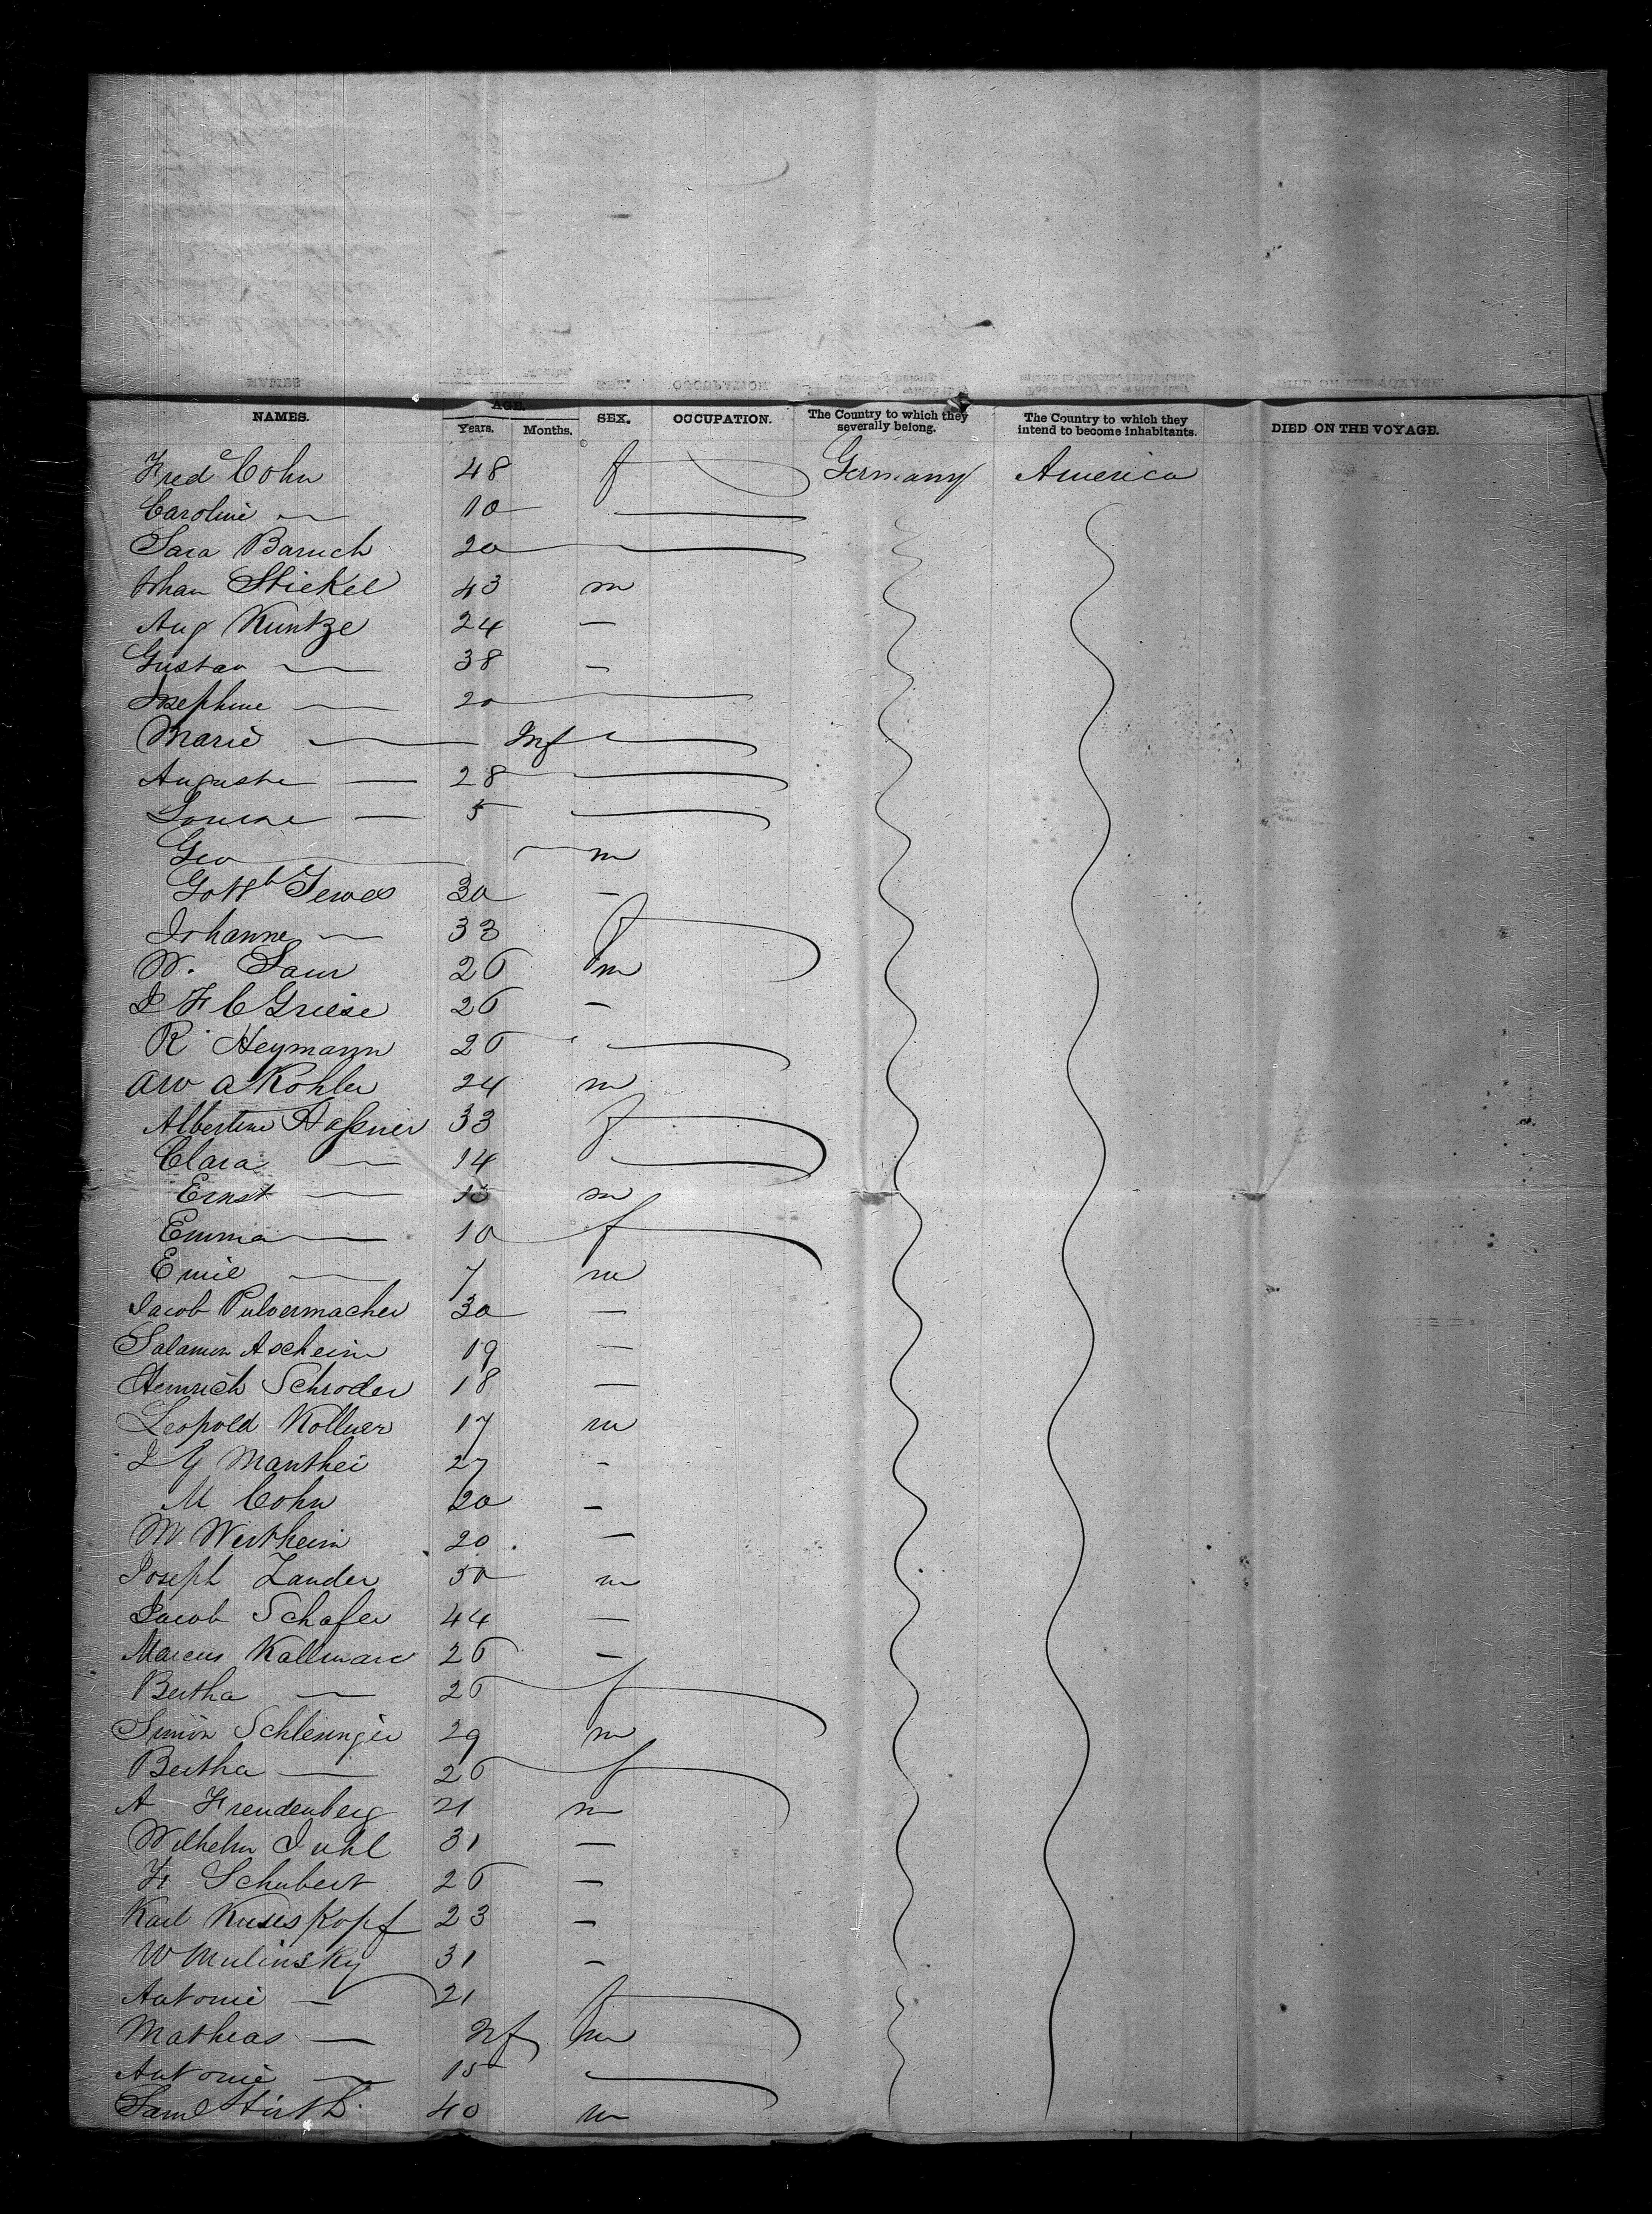 NAMES. AGE. Years. Months. SEX. OCCUPATION. The Country to which they severally belong. The Country to which they intend to become inhabitants. DIED ON THE VOYAGE.
Fred e Cohn 48 f Germany America
Caroline — 10
Sara Baruch 20
Johan Stickel 43 m
Aug Kuntze 24 —
Gustav — 38 —
Josephine — 20
Marie — Inf
Auguste — 28
Louise — 5
Geo — m
Gottb Tewes 30 —
Johanne — 33 f
W. Saur 26 m
J F C Griese 26 —
R Heymann 26
Aw a Kohler 24 m
Albertine Haßner 33 f
Clara — 14
Ernst — m
Emma — 10 f
Emil — 7 m
Jacob Pulvermacher 30 —
Salamon Ascheim 19 —
Heinrich Schroder 18 —
Leopold Kollner 17 m
J G Manthei 27 -
M Cohn 20 —
M. Wertheim 20. —
Joseph Zander 50 m
Jacob Schafer 44 —
Marcus Kallmann 26 —
Bertha — 26 f
Simon Schlesinger 29 m
Bertha — 26 f
A Freudenberg 21 m
Wilhelm Juhl 31 —
Fr Schubert 26 —
Karl Kieskopf 23 —
W Mulinsky 31 -
Antonie — 21 f
Mathias — Inf m
Antonie — 15
Saml Hirth 40 m